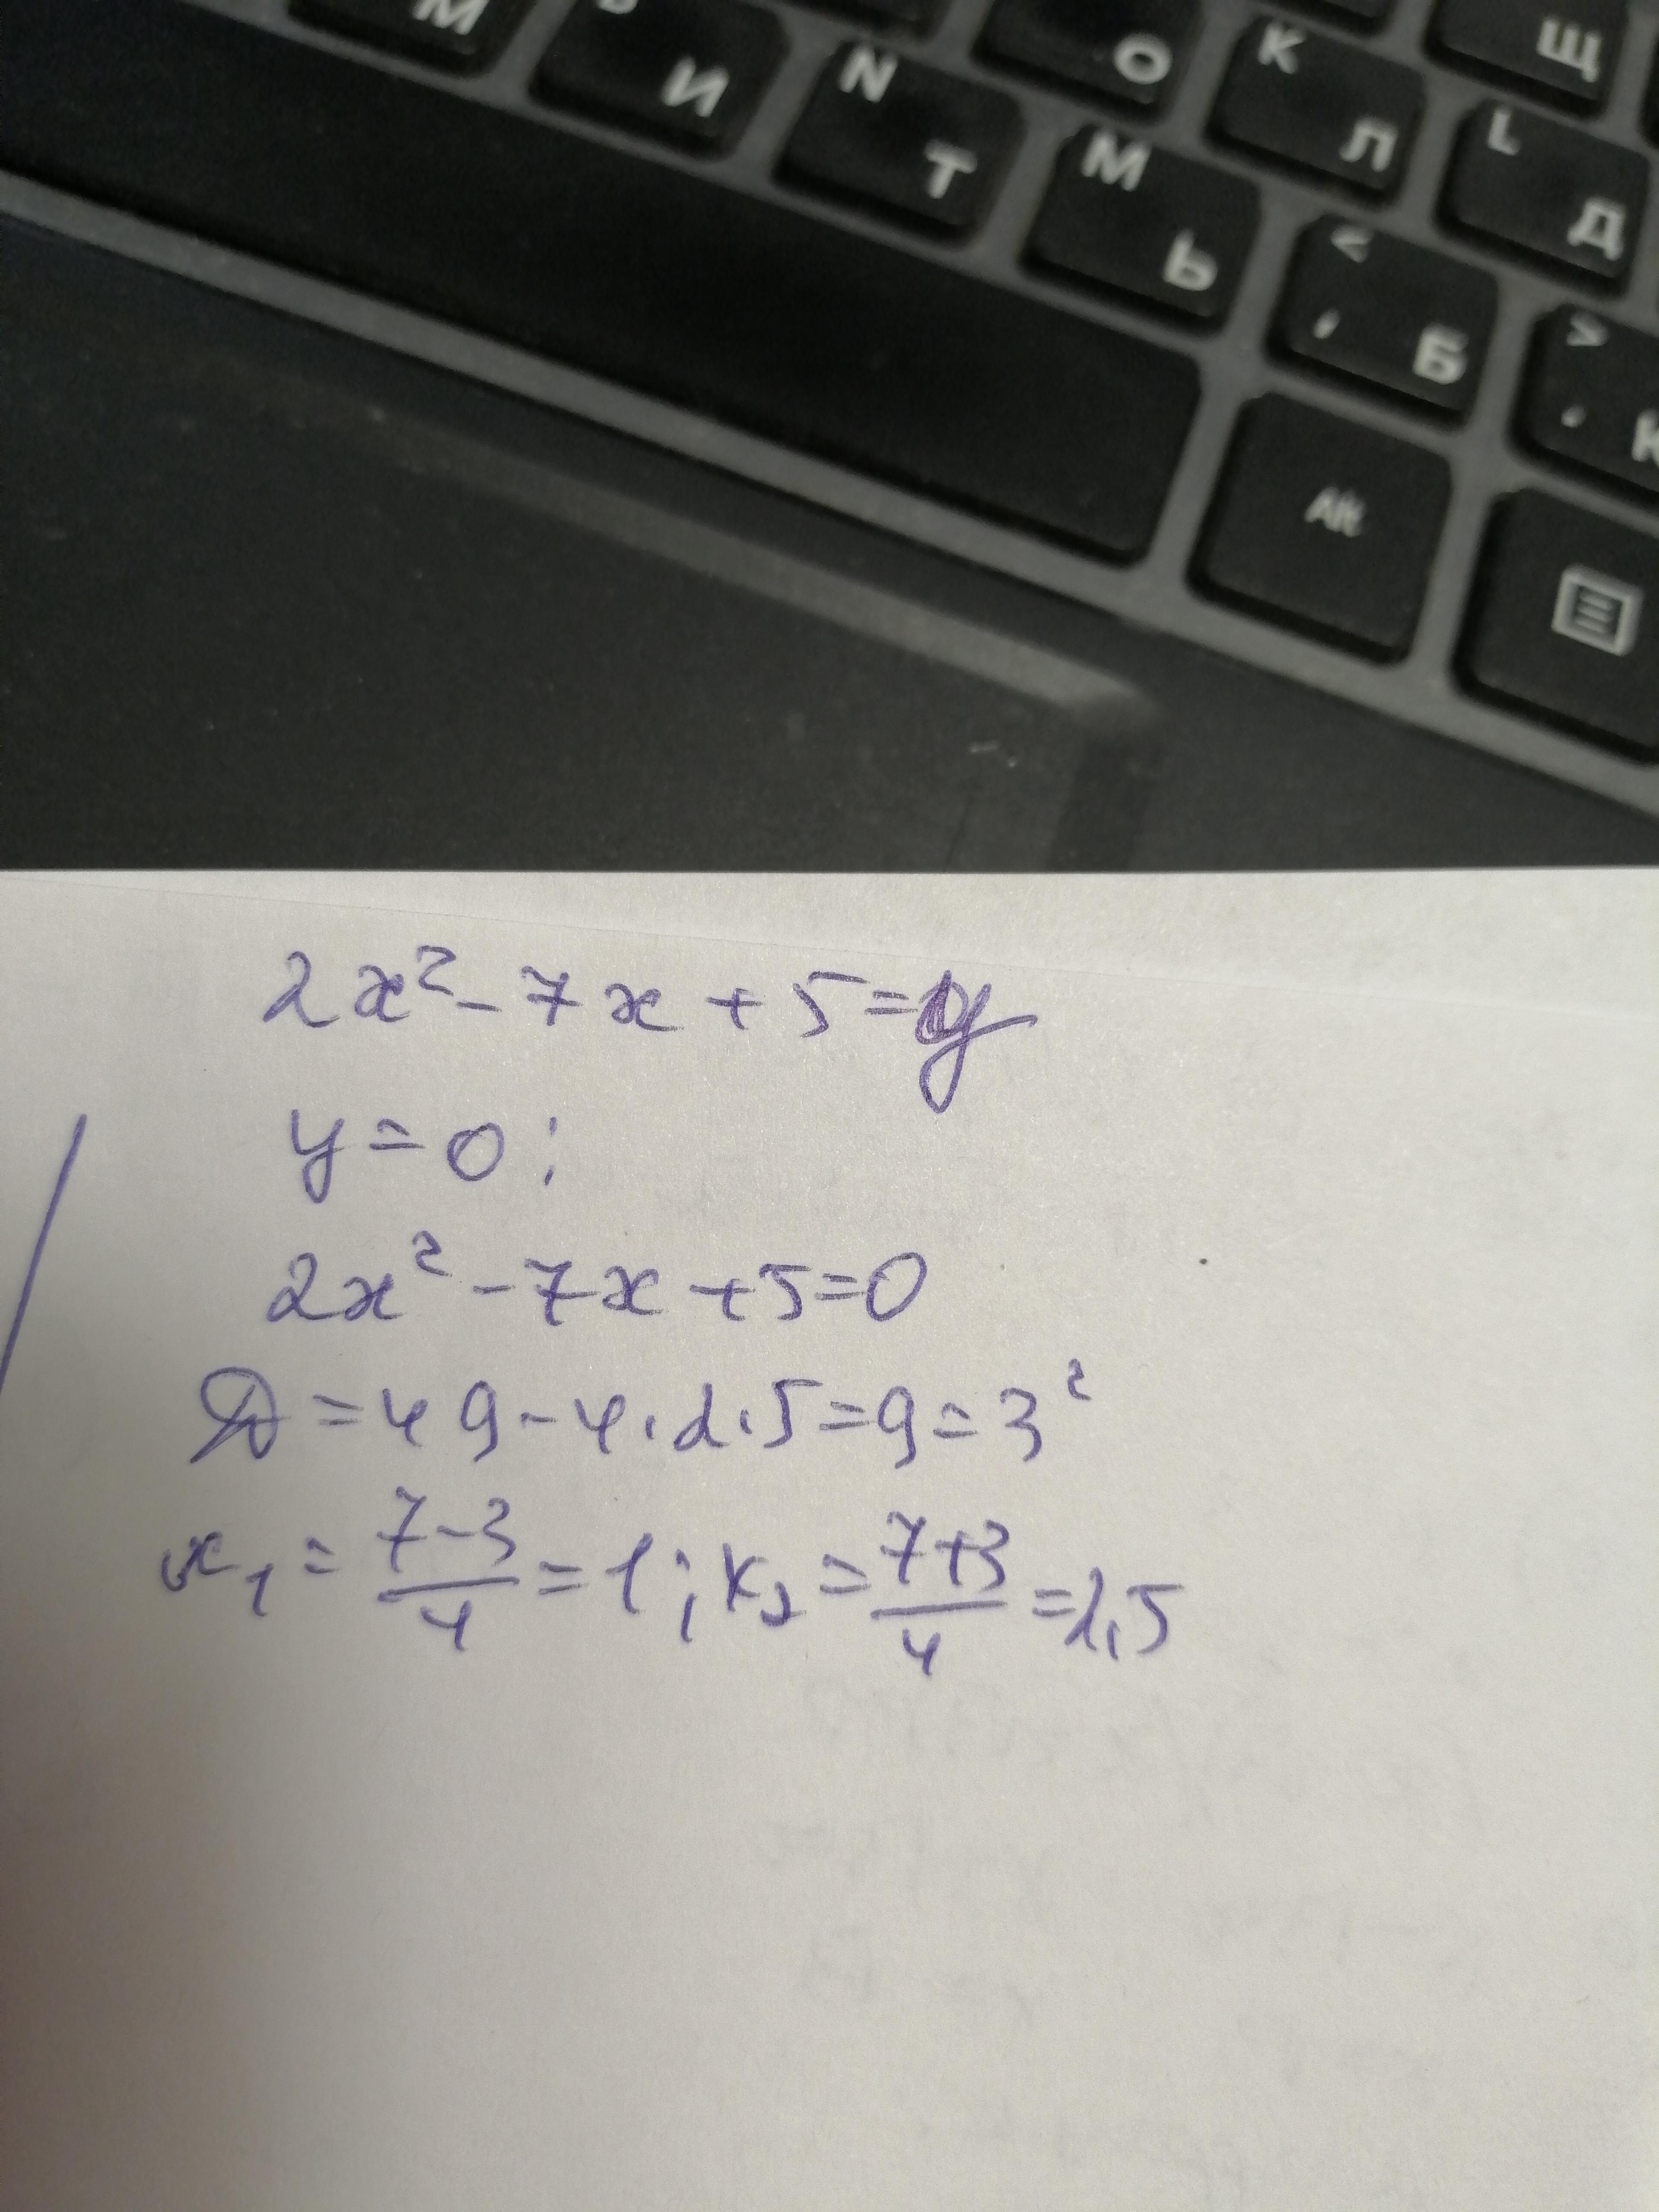 М
И
N
Т
О
K
Л
Щ
M
Ь
L
Д
<
,
Б
>
.
Alt
2x² - 7x + 5 = y
y = 0 :
2x² - 7x + 5 = 0
D = 49 - 4 · 2 · 5 = 9 = 3²
x₁ = (7-3)/4 = 1 ; x₂ = (7+3)/4 = 2,5